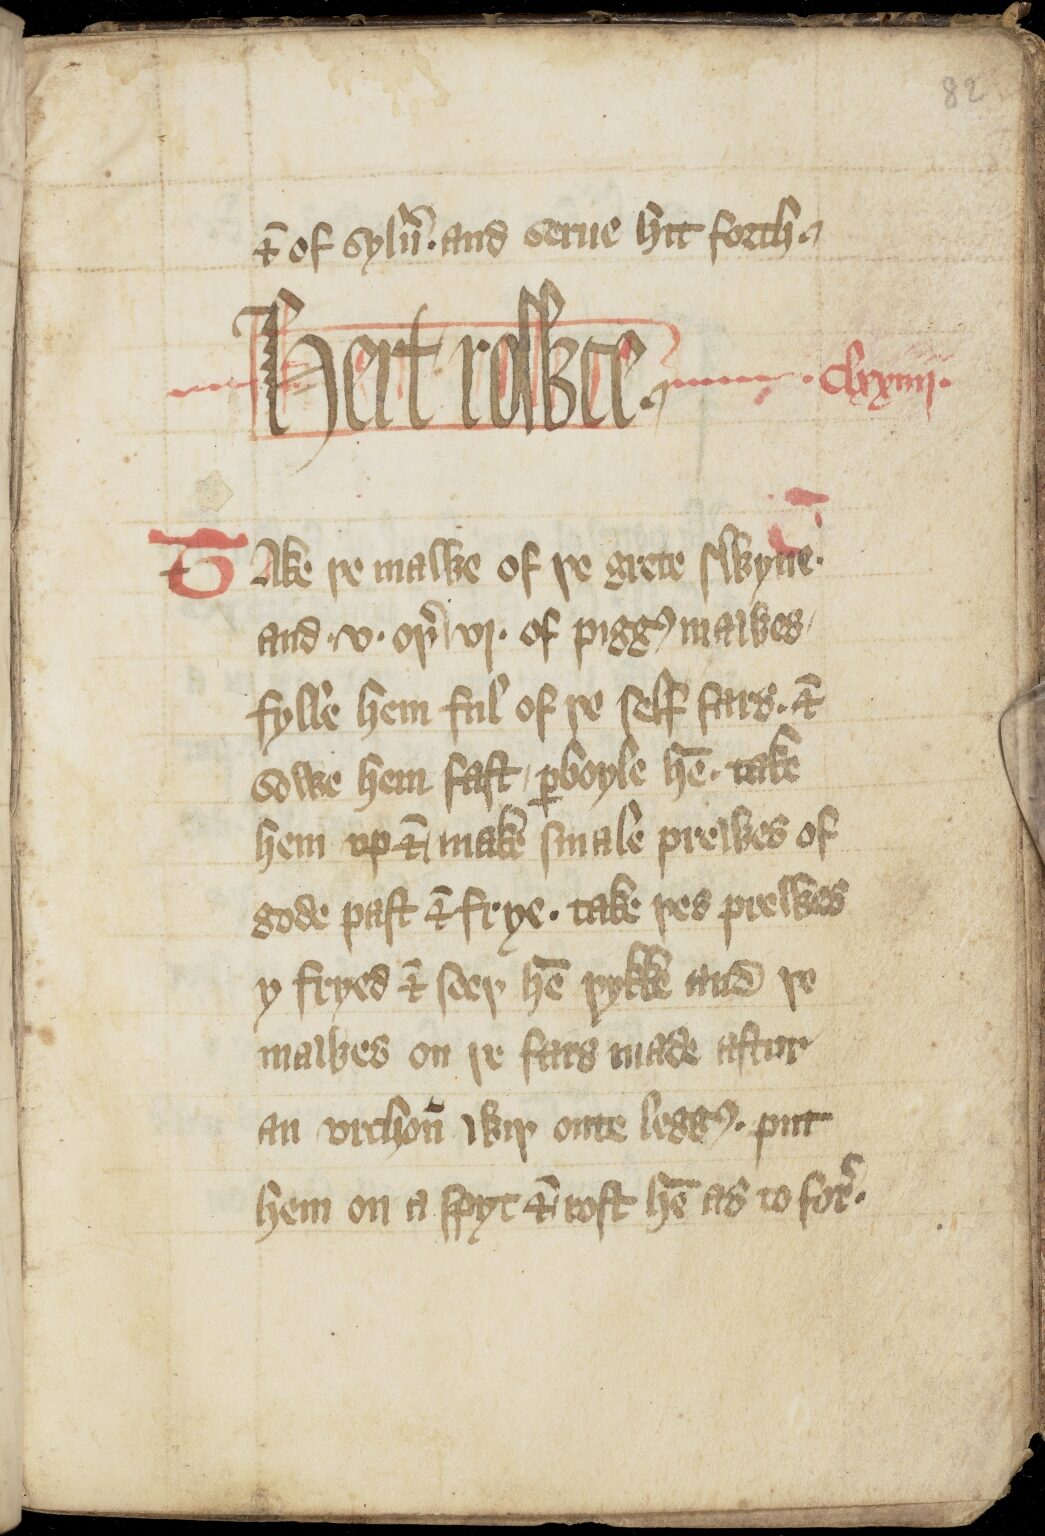 82
⁊ of sylu̅. and serue hit forth.
Hert rowce. clxxiiii.
Take þe mawe of þe grete swyne.
and .v. oþ̉ vj. of pigg̉ mawes/
fylle hem ful of þe self fars. ⁊
sowe hem fast/ ꝑboyle he̅. take
hem vp ⁊ make smale prewes of
gode past ⁊ frye. take þes prewes
y fryed ⁊ seeþ he̅ þykke and þe
mawes on þe fars made aftur
an vrchon̅ wiþ oute legg̉. put
hem on a spyt ⁊ rost he̅ as to for̉.